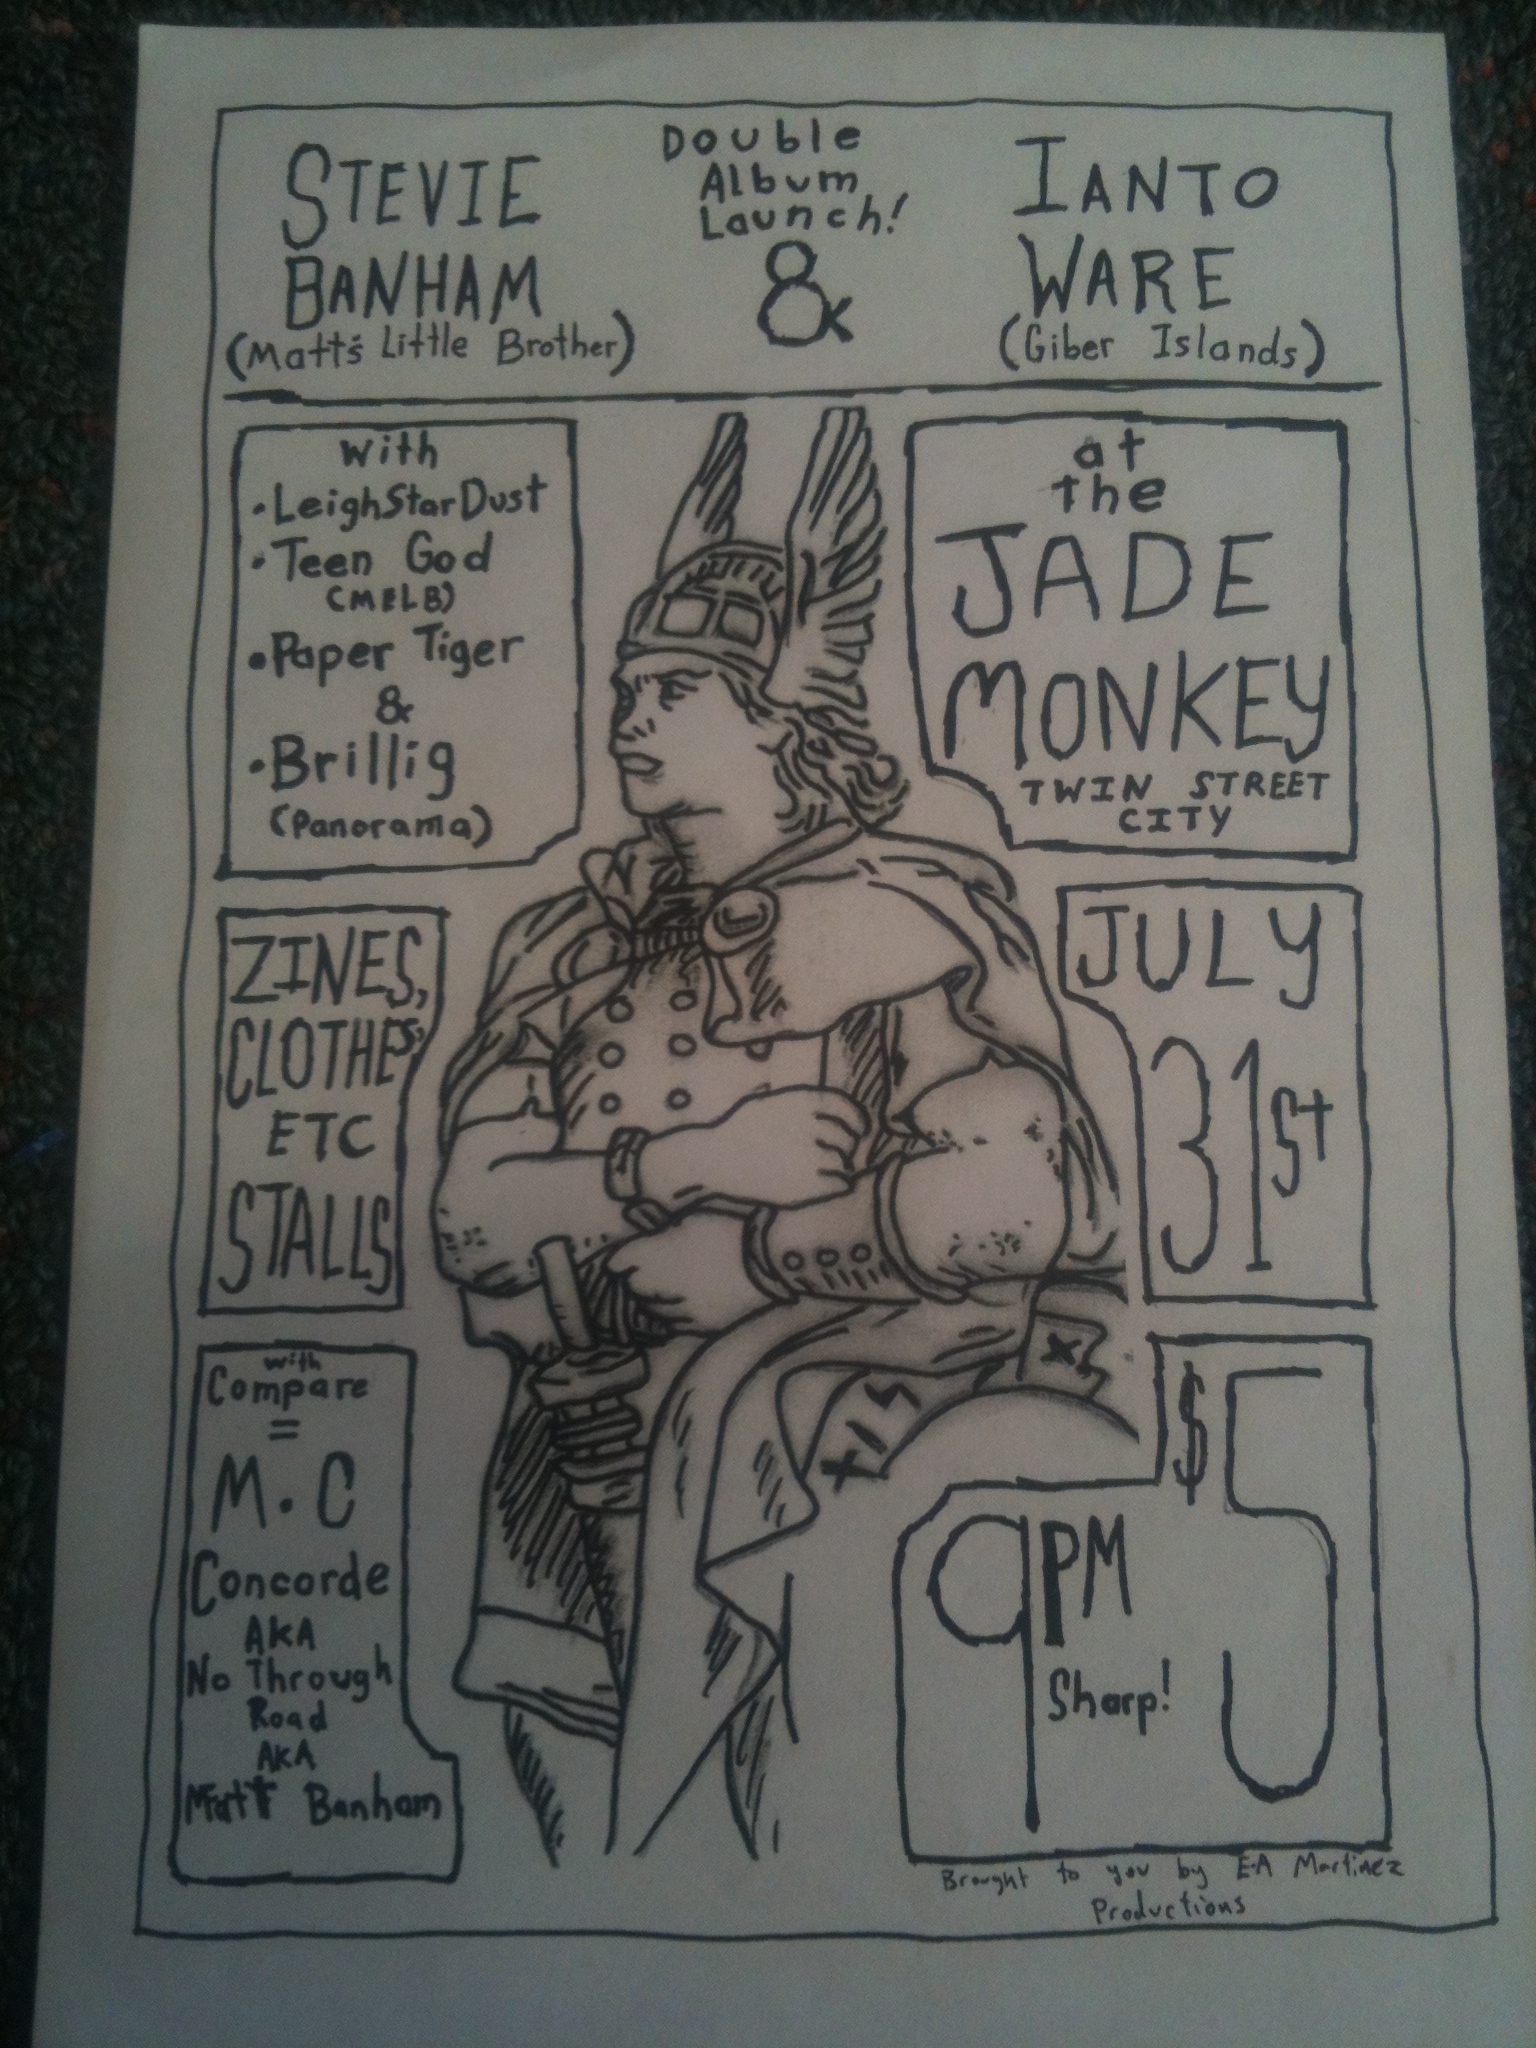 Double
Album
Launch!
STEVIE
BANHAM
(Matt's Little Brother)
&
IANTO
WARE
(Giber Islands)
with
• LeighStarDust
• Teen God
(MELB)
• Paper Tiger
&
• Brillig
(Panorama)
at
the
JADE
MONKEY
TWIN STREET
CITY
ZINES,
CLOTHES,
ETC
STALLS
JULY
31st
with
Compare
=
M.C
Concorde
AKA
No Through
Road
AKA
Matt Banham
$5
9PM
Sharp!
Brought to you by E.A Martinez
Productions